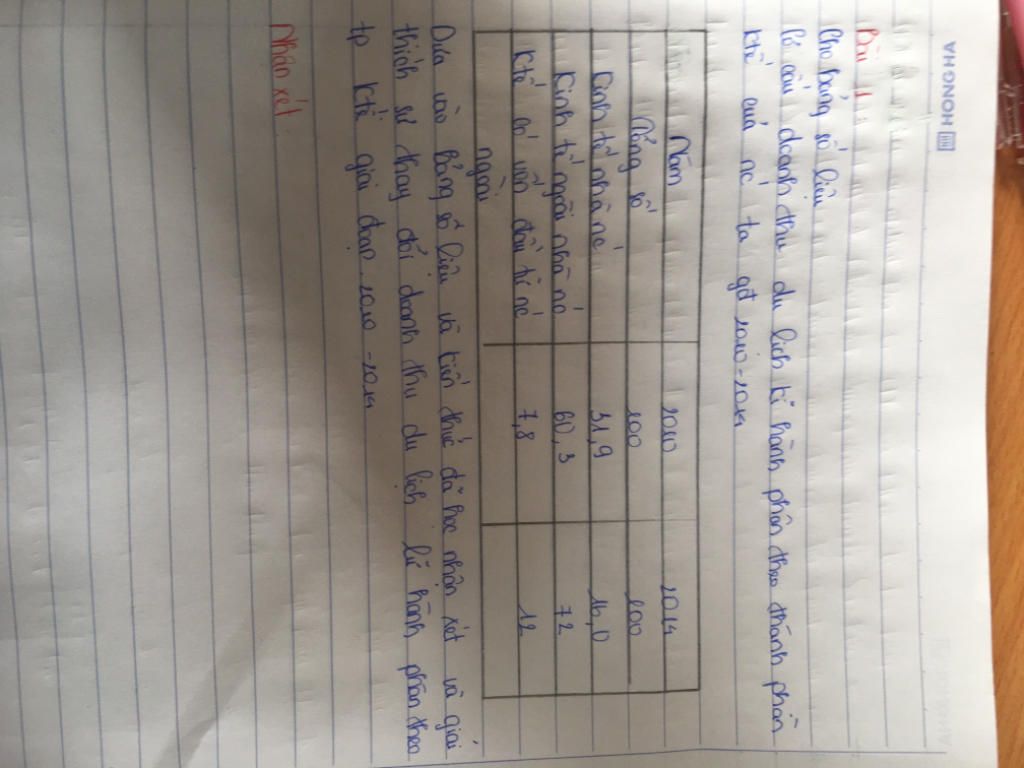 HONGHA
Bài 1
Cho bảng số liệu
Cơ cấu doanh thu du lịch lữ hành phân theo thành phần
Ktế của nc ta gđ 2010-2014
Năm 2010 2014
Tổng số 100 100
Kinh tế nhà nc 31,9 16,0
Kinh tế ngoài nhà nc 60,3 72
Ktế có vốn đầu tư nc 7,8 12
ngoài
Dựa vào bảng số liệu và kiến thức đã học nhận xét và giải
thích sự thay đổi doanh thu du lịch lữ hành phân theo
tp ktế giai đoạn 2010-2014
Nhận xét